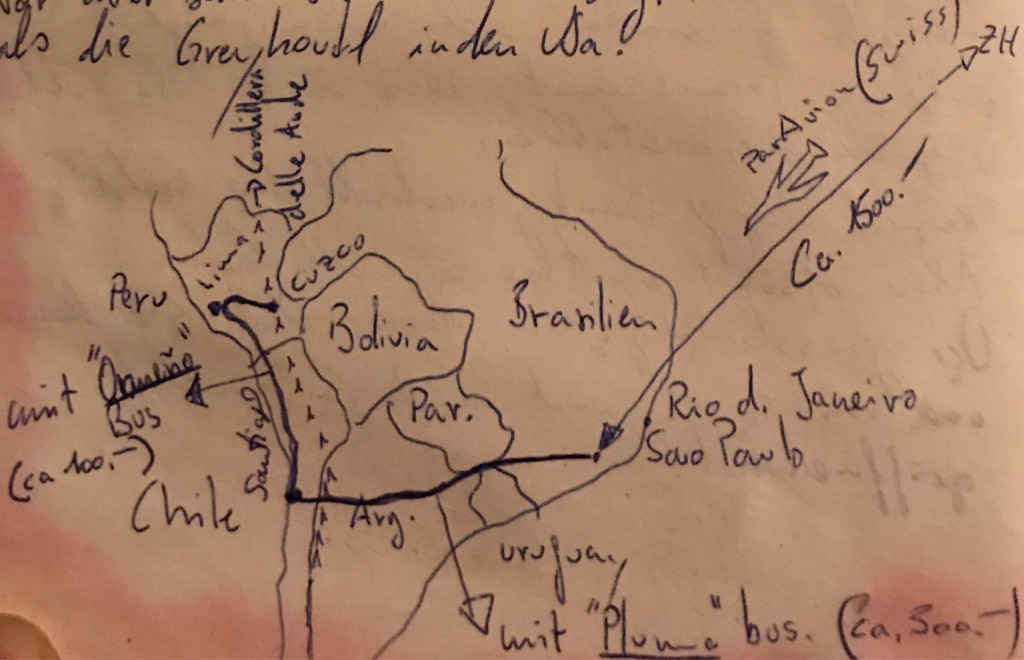 als die Greyhound in den Usa!
→ Cordillera
delle Ande
Par Avion (Swiss)
→ ZH
Ca. 1500.-
Lima
Cuzco
Peru
Bolivia
Brasilien
mit "Ormeño"
Bus
(ca 100.-)
Santiago
Par.
Rio d. Janeiro
Sao Paulo
Chile
Arg.
uruguay
mit "Pluma" bus. (Ca. 300.-)